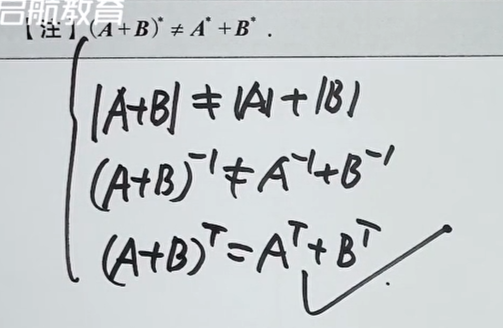 启航教育
【注】(A+B)* ≠ A* + B* .
|A+B| ≠ |A| + |B|
(A+B)⁻¹ ≠ A⁻¹ + B⁻¹
(A+B)ᵀ = Aᵀ + Bᵀ